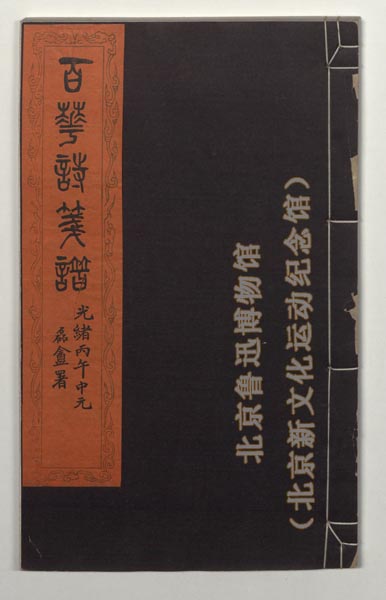 百華詩箋譜
光緒丙午中元
磊盦署
北京鲁迅博物馆
（北京新文化运动纪念馆）